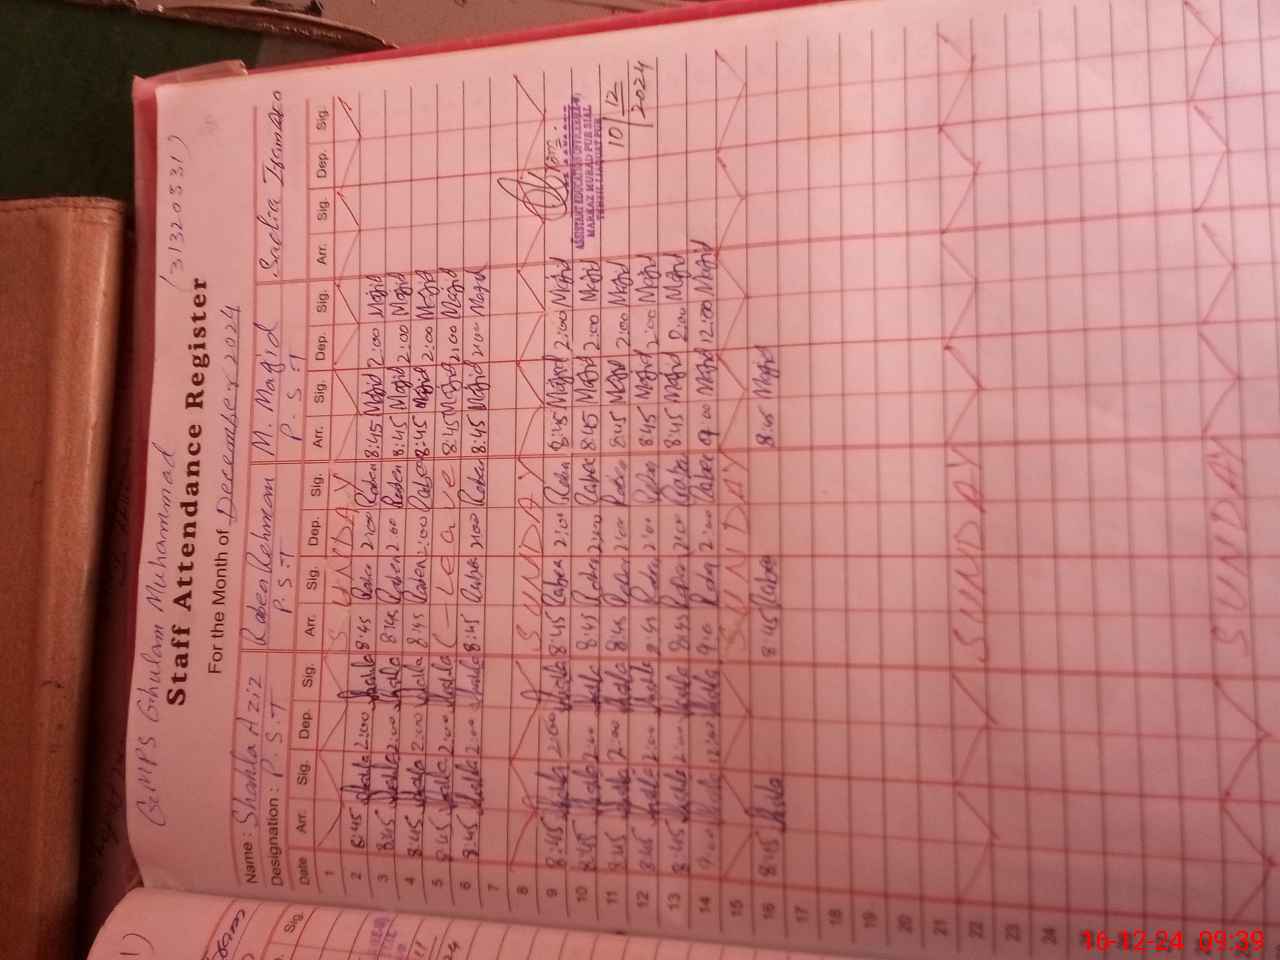 GMPS Ghulam Muhammad (31320531)
Staff Attendance Register
For the Month of December 2024
Name: Shahla Aziz Raben Rehman M. Majid Sadia
Designation: P.S.T P.S.T P.S.T
Date Arr. Sig. Dep. Sig. Arr. Sig. Dep. Sig. Arr. Sig. Dep. Sig. Arr. Sig. Dep. Sig.
1 SUNDAY
2 8:45 Shahla 2:00 Shahla 8:45 Raben 2:00 Raben 8:45 Majid 2:00 Majid
3 8:45 Shahla 2:00 Shahla 8:45 Raben 2:00 Raben 8:45 Majid 2:00 Majid
4 8:45 Shahla 2:00 Shahla 8:45 Raben 2:00 Raben 8:45 Majid 2:00 Majid
5 8:45 Shahla 2:00 Shahla Leave 8:45 Majid 2:00 Majid
6 8:45 Shahla 2:00 Shahla 8:45 Raben 2:00 Raben 8:45 Majid 2:00 Majid
7
8 SUNDAY
9 8:45 Shahla 2:00 Shahla 8:45 Raben 2:00 Raben 8:45 Majid 2:00 Majid
10 8:45 Shahla 2:00 Shahla 8:45 Raben 2:00 Raben 8:45 Majid 2:00 Majid
11 8:45 Shahla 2:00 Shahla 8:45 Raben 2:00 Raben 8:45 Majid 2:00 Majid
12 8:45 Shahla 2:00 Shahla 8:45 Raben 2:00 Raben 8:45 Majid 2:00 Majid
13 8:45 Shahla 2:00 Shahla 8:45 Raben 2:00 Raben 8:45 Majid 2:00 Majid
14 12:00 Shahla Raben Raben 9:00 Majid 12:00 Majid
15 SUNDAY
16 8:45 Shahla 8:45 Raben 8:45 Majid
17
18
19
20
21
22 SUNDAY
23
24
SUNDAY
ASSISTANT EDUCATION OFFICER
MARKAZ MURAD PUR SIAL
10/12/2024
Sig.
16-12-24 09:39